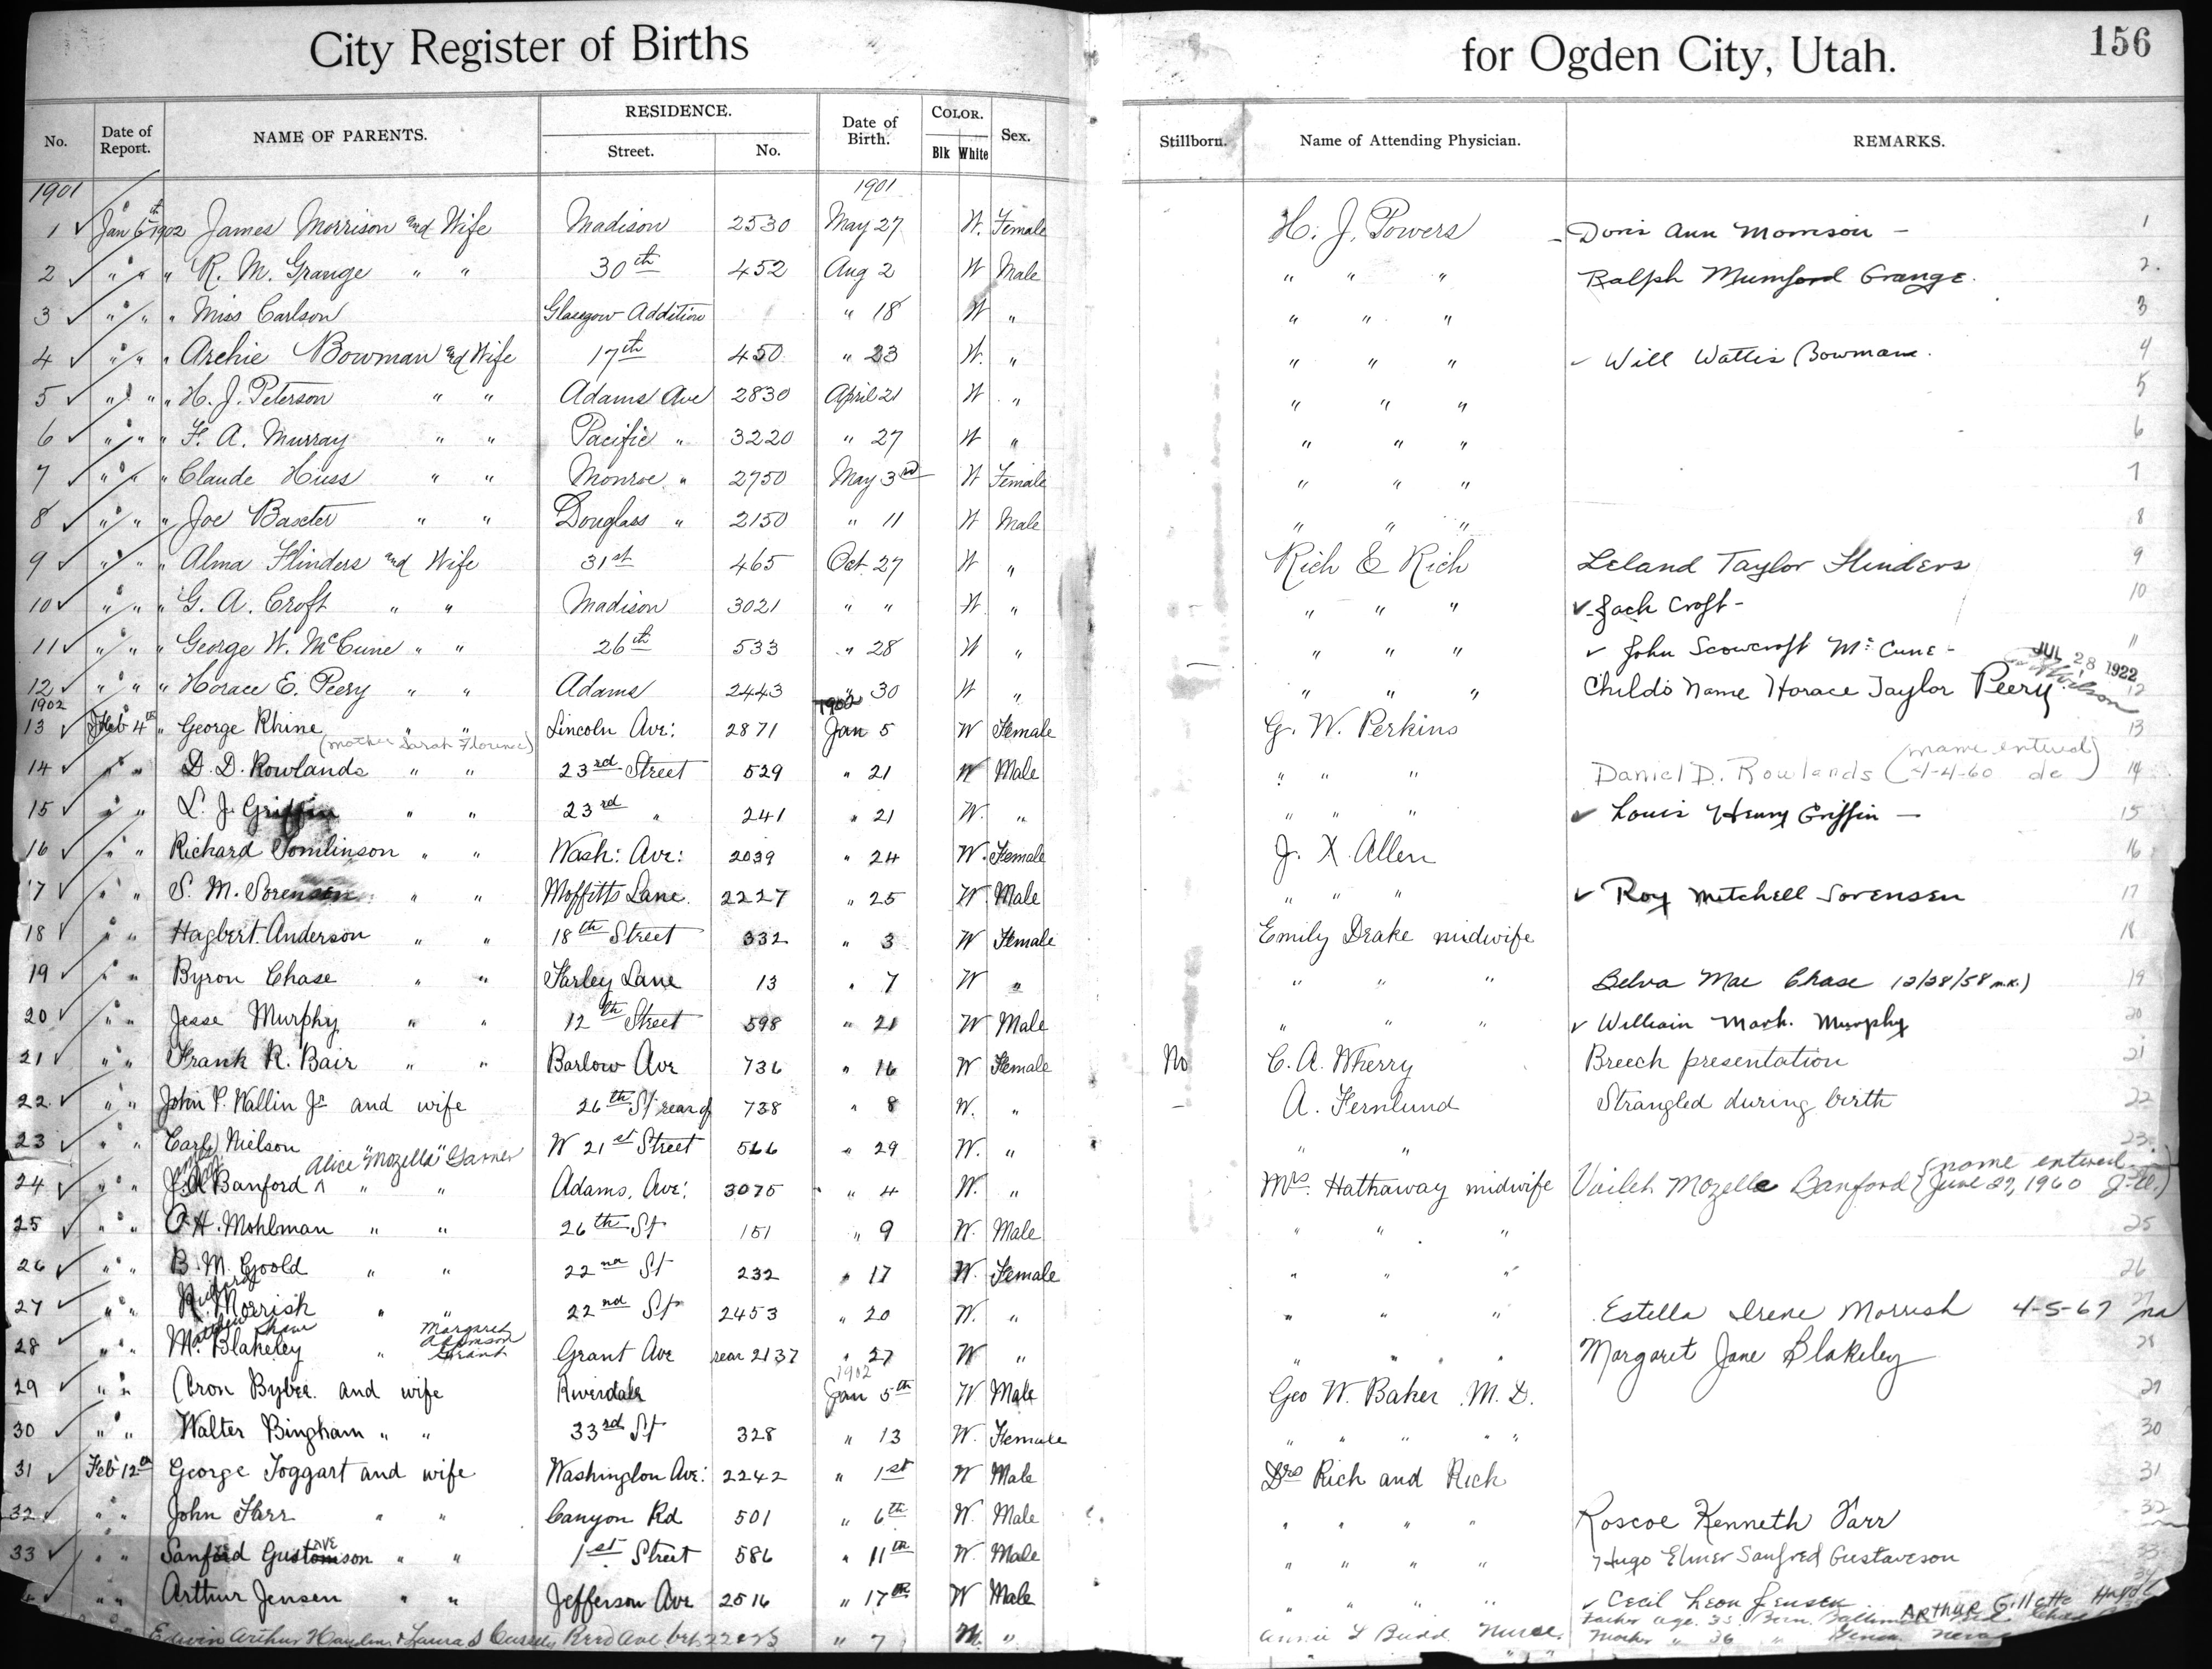 City Register of Births for Ogden City, Utah. 156
No. Date of Report. NAME OF PARENTS. RESIDENCE. Street. No. Date of Birth. COLOR. Blk White Sex. Stillborn. Name of Attending Physician. REMARKS.
1901 1901
1 ✓ Jan 6th 1902 James Morrison and Wife Madison 2530 May 27 W. Female H. J. Powers - Doris Ann Morrison - 1
2 ✓ " " " R. M. Grange " " 30th 452 Aug 2 W Male " " " Ralph Mumford Grange. 2.
3 ✓ " " " Miss Carlson Glasgow Addition " 18 W " " " " 3
4 ✓ " " " Archie Bowman and Wife 17th 450 " 23 W. " " " " ✓ Will Wattis Bowman. 4
5 ✓ " " " H. J. Peterson " " Adams Ave 2830 April 21 W " " " " 5
6 ✓ " " " F. A. Murray " " Pacific " 3220 " 27 W " " " " 6
7 ✓ " " " Claude Huss " " Monroe " 2750 May 3rd W Female " " " 7
8 ✓ " " " Joe Baxter " " Douglass " 2150 " 11 W Male " " " 8
9 ✓ " " " Alma Flinders and Wife 31st 465 Oct 27 W " Rich & Rich Leland Taylor Flinders 9
10 ✓ " " " G. A. Croft " " Madison 3021 " " W. " " " " ✓ Jack Croft - 10
11 ✓ " " " George W. McCune " " 26th 533 " 28 W " " " " ✓ John Scowcroft Mc Cune - 11
JUL 28 1922
12 ✓ " " " Horace E. Peery " " Adams 2443 " 30 W " " " " Child's Name Horace Taylor Peery 12
1902 1902
13 ✓ Feb 4th " George Rhine " " Lincoln Ave: 2871 Jan 5 W Female G. W. Perkins 13
(mother Sarah Florence) (name entered
14 ✓ " " D. D. Rowlands " " 23rd Street 529 " 21 W Male " " " Daniel D. Rowlands 4-4-60 de) 14
15 ✓ " " L. J. Griffin " " 23rd " 241 " 21 W. " " " " ✓ Louis Henry Griffin - 15
16 ✓ " " Richard Tomlinson " " Wash: Ave: 2039 " 24 W. Female J. X. Allen 16
17 ✓ " " S. M. Sorensen " " Moffitts Lane. 2227 " 25 W. Male " " " ✓ Roy Mitchell Sorensen 17
18 ✓ " " Hagbert Anderson " " 18th Street 332 " 3 W Female Emily Drake midwife 18
19 ✓ " " Byron Chase " " Farley Lane 13 " 7 W " " " " Belva Mae Chase 12/28/58 m.k.) 19
20 ✓ " " Jesse Murphy " " 12th Street 598 " 21 W Male " " " ✓ William Mark. Murphy 20
21 ✓ " " Frank R. Bair " " Barlow Ave 736 " 16 W Female No C. A. Wherry Breech presentation 21
22 ✓ " " John P. Wallin Jr and wife 26th St rear of 738 " 8 W. " - A. Fernlund Strangled during birth 22
23 ✓ " " Carl Nielson W 21st Street 566 " 29 W. " " " 23
Alice "Mozella" Garner (name entered
24 ✓ " " Banford " " Adams. Ave: 3075 " 4 W. " Mrs. Hathaway midwife Mozelle Banford June 27, 1960
25 ✓ " " O. H. Mohlman " " 26th St 151 " 9 W. Male " " " 25
26 ✓ " " B. M. Goold " " 22nd St 232 " 17 W. Female " " " 26
Richard
27 ✓ " " R. Morrish " " 22nd St 2453 " 20 W. " " " " Estella Irene Morrish 4-5-67 na
Matthew Shaw Margaret Adamson Grant
28 ✓ " " M. Blakeley " Grant Ave rear 2137 " 27 W " " " " Margaret Jane Blakeley 28
1902
29 ✓ " " Aron Bybee. and wife Riverdale Jan 5th W Male Geo W. Baker M. D. 29
30 ✓ " " Walter Bingham " " 33rd St 328 " 13 W. Female " " " " " 30
31 ✓ Feb 12th George Toggart and wife Washington Ave: 2242 " 1st W Male Drs Rich and Rich 31
32 ✓ " " John Farr " " Canyon Rd 501 " 6th W. Male " " " " Roscoe Kenneth Farr 32
33 ✓ " " Sanford Gustaveson " " 1st Street 586 " 11th W. Male " " " " Hugo Elmer Sanfred Gustaveson 33
" " Arthur Jensen " " Jefferson Ave 2516 " 17th W Male " " " " ✓ Cecil Leon Jensen 34
Arthur Gillette
Edwin Arthur & Laura S Reed Ave " 7 " Annie L Budd Nurse Father age 35 Born
Mother " 36 "